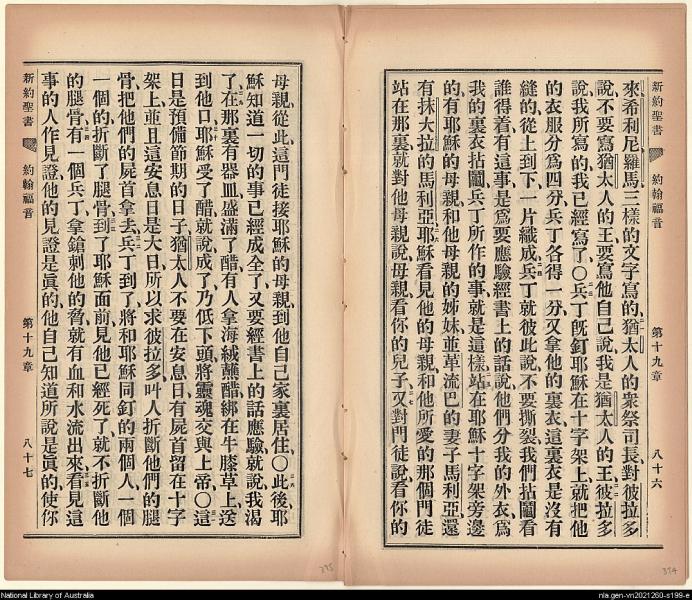 新約聖書 約翰福音 第十九章 八十六
來希利尼羅馬三樣的文字寫的猶太人的衆祭司長對彼拉多
說不要寫猶太人的王要寫他自己說我是猶太人的王彼拉多
說我所寫的我已經寫了〇兵丁旣釘耶穌在十字架上就把他
的衣服分爲四分兵丁各得一分又拿他的裏衣這裏衣是沒有
縫的從上到下一片織成兵丁就彼此說不要撕裂我們拈鬮看
誰得着有這事是爲要應驗經書上的話說他們分我的外衣爲
我的裏衣拈鬮兵丁所作的事就是這樣站在耶穌十字架旁邊
的有耶穌的母親和他母親的姊妹並革流巴的妻子馬利亞還
有抹大拉的馬利亞耶穌看見他的母親和他所愛的那個門徒
站在那裏就對他母親說母親看你的兒子又對門徒說看你的
母親從此這門徒接耶穌的母親到他自己家裏居住〇此後耶
穌知道一切的事已經成全了又要經書上的話應驗就說我渴
了在那裏有器皿盛滿了醋有人拿海絨蘸醋綁在牛膝草上送
到他口耶穌受了醋就說成了乃低下頭將靈魂交與上帝〇這
日是預備節期的日子猶太人不要在安息日有屍首留在十字
架上並且這安息日是大日所以求彼拉多叫人折斷他們的腿
骨把他們的屍首拿去兵丁到了將和耶穌同釘的兩個人一個
一個的折斷了腿骨到了耶穌面前見他已經死了就不折斷他
的腿骨有一個兵丁拿鎗刺他的脅就有血和水流出來看見這
事的人作見證他的見證是眞的他自己知道所說是眞的使你
新約聖書 約翰福音 第十九章 八十七
295
374
National Library of Australia
nla.gen-vn2021260-s199-e